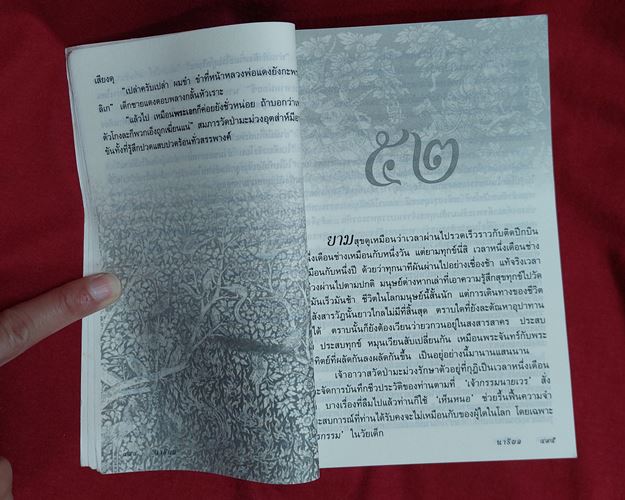 เสียงดุ
"เปล่าครับเปล่า ผมขำ ขำที่หน้าหลวงพ่อแดงยังกะพระ
ลิเก" เด็กชายแดงตอบพลางกลั้นหัวเราะ
"แล้วไป เหมือนพระเอกก็ค่อยยังชั่วหน่อย ถ้าบอกว่าเ
ตัวโกงละก็พวกเอ็งถูกเฆี่ยนแน่" สมภารวัดป่ามะม่วงอุตส่าห์มีอ
ขันทั้งที่รู้สึกปวดแสบปวดร้อนทั่วสรรพางค์
๕๒
ยามสุขดูเหมือนว่าเวลาผ่านไปรวดเร็วราวกับติดปีกบิน
นึ่งเดือนช่างเหมือนกับหนึ่งวัน แต่ยามทุกข์นี่สิ เวลาหนึ่งเดือนช่าง
หมือนกับหนึ่งปี ด้วยว่าทุกนาทีผันผ่านไปอย่างเชื่องช้า แท้จริงเวลา
วงผ่านไปตามปกติ มนุษย์ต่างหากเล่าที่เอาความรู้สึกสุขทุกข์ไปวัด
มันเร็วมันช้า ชีวิตในโลกมนุษย์นี้สั้นนัก แต่การเดินทางของชีวิต
สังสารวัฏนั้นยาวไกลไม่มีที่สิ้นสุด ตราบใดที่ยังละตัณหาอุปาทาน
ได้ ตราบนั้นก็ยังต้องเวียนว่ายวกวนอยู่ในสงสารสาคร ประสบ
ประสบทุกข์ หมุนเวียนสับเปลี่ยนกัน เหมือนพระจันทร์กับพระ
ทิตย์ที่ผลัดกันลงผลัดกันขึ้น เป็นอยู่อย่างนี้มานานแสนนาน
เจ้าอาวาสวัดป่ามะม่วงรักษาตัวอยู่ที่กุฏิเป็นเวลาหนึ่งเดือน
ะจัดการบันทึกชีวประวัติของท่านตามที่ 'เจ้ากรรมนายเวร' สั่ง
บางเรื่องที่ลืมไปแล้วท่านก็ใช้ 'เห็นหนอ' ช่วยรื้อฟื้นความจำ
ะสบการณ์ที่ท่านได้รับคงจะไม่เหมือนกับของผู้ใดในโลก โดยเฉพาะ
รกรรม' ในวัยเด็ก
นาริยล
นาริยล ๔๙๕